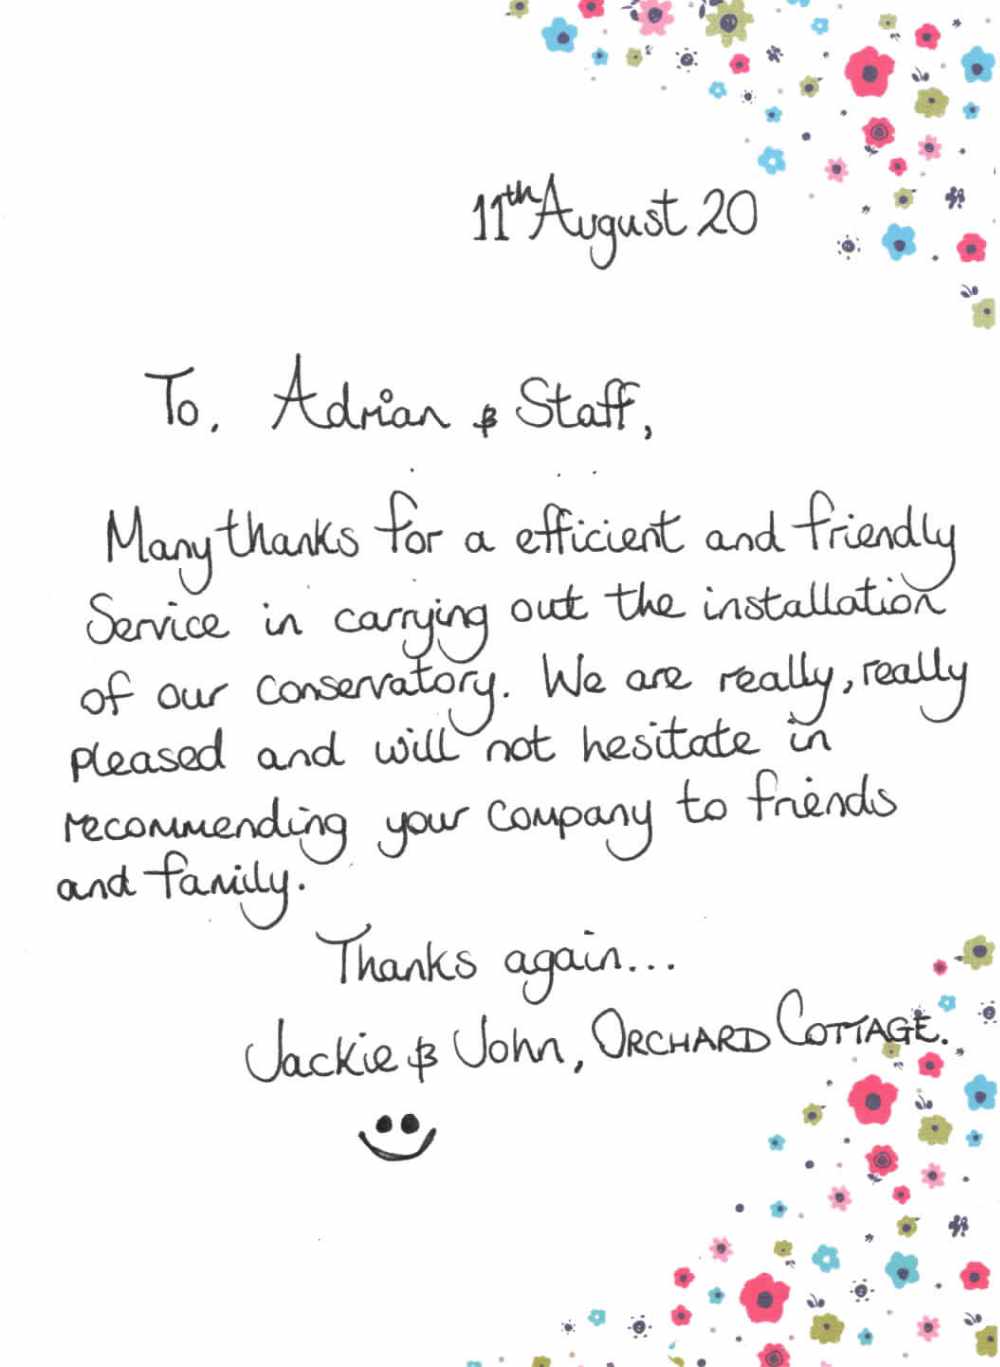 11th August 20
To, Adrian & Staff,
Many thanks for a efficient and friendly
Service in carrying out the installation
of our conservatory. We are really, really
pleased and will not hesitate in
recommending your company to friends
and family.
Thanks again...
Jackie & John, ORCHARD COTTAGE.